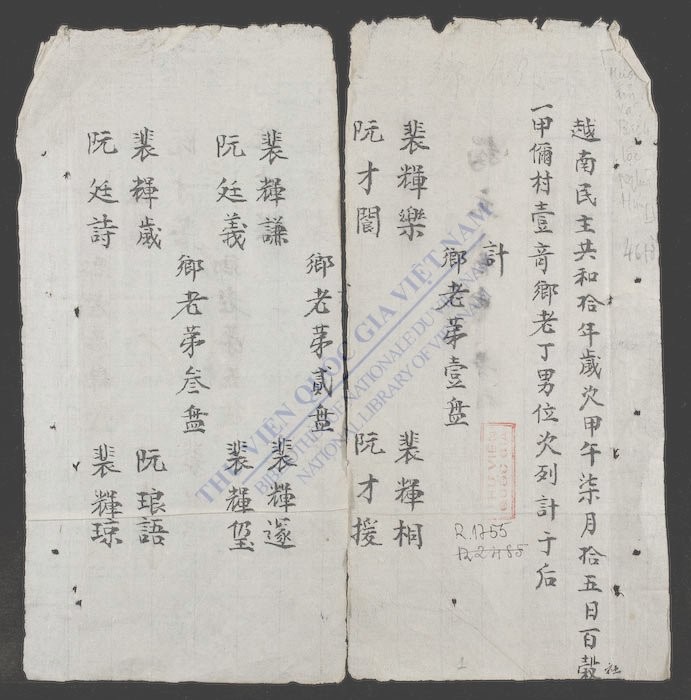 越南民主共和拾年歲次甲午柒月拾五日百穀社
一甲儞村壹 鄉老丁男位次列計于后
計
鄉老苐壹盘
裴輝樂 裴輝相
阮才 阮才援
鄉老苐貳盘
裴輝謙 裴輝遂
阮廷義 裴輝
鄉老苐叁盘
裴輝歲 阮琅語
阮廷詩 裴輝琼
THƯ VIỆN QUỐC GIA VIỆT NAM
BIBLIOTHÈQUE NATIONALE DU VIETNAM
NATIONAL LIBRARY OF VIETNAM
THU VIEN
QUOC GIA
R.1755
1